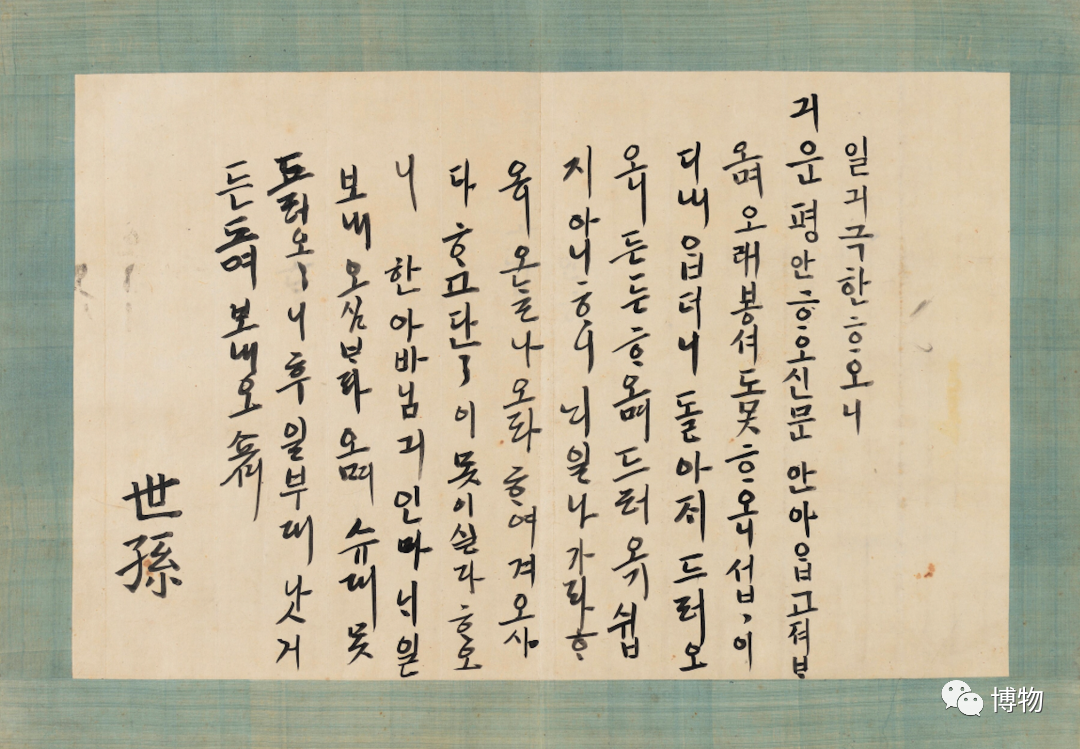 일긔극한ᄒᆞ오니
긔운 평안ᄒᆞ오신 문안 아ᄋᆞᆸ고져 ᄇᆞ라
오며 오래 봉셔도 못ᄒᆞ오니 섭〻이
디내ᄋᆞᆸ더니 돌아저 드러오
오니 든든ᄒᆞ오며 드러오기 쉽
지 아니ᄒᆞ니 ᄂᆡ일 나가라 ᄒᆞ
오니 오ᄂᆞᆯ 나오라 ᄒᆞ여 겨오샤
다 ᄒᆞ고 단〻이 못 이실다 ᄒᆞ오
니 한아바님긔 인마 ᄂᆡ일
보내오심 ᄇᆞ라오며 슈대 못
드러오〻니 후일 부대 낫거
든 드려 보내오쇼셔
世孫
博物